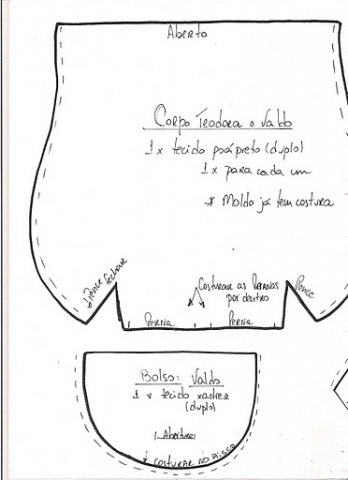 Aberto
Corpo Teodora e Valdo
1x tecido poá preto (duplo)
1x para cada um
* Molde já tem costura
Pence fechar
Costurar as Pernas
por dentro
Pence
PERNA
PERNA
Bolso: Valdo
1 x tecido xadrez
(duplo)
Abertura
costurar no risco